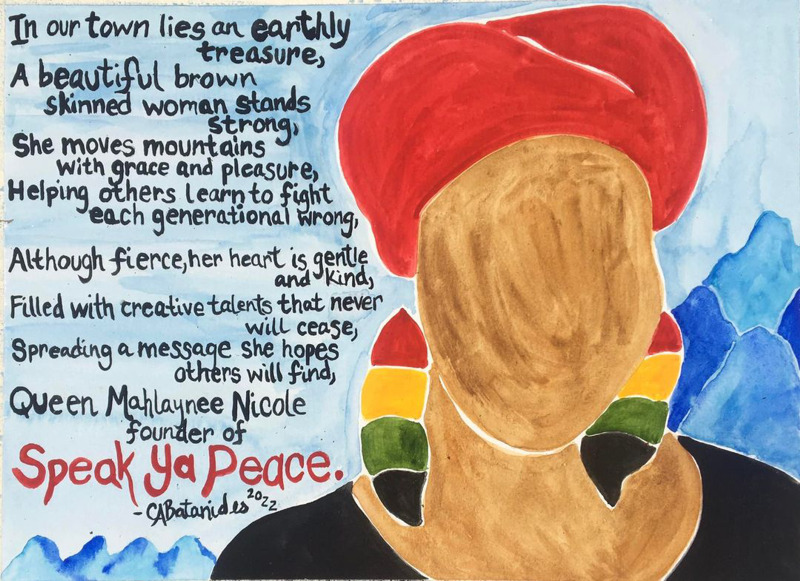 In our town lies an earthly
treasure,
A beautiful brown
skinned woman stands
strong,
She moves mountains
with grace and pleasure,
Helping others learn to fight
each generational wrong,
Although fierce, her heart is gentle
and kind,
Filled with creative talents that never
will cease,
Spreading a message she hopes
others will find,
Queen Mahlaynee Nicole
founder of
Speak Ya Peace.
-CABatanides 2022